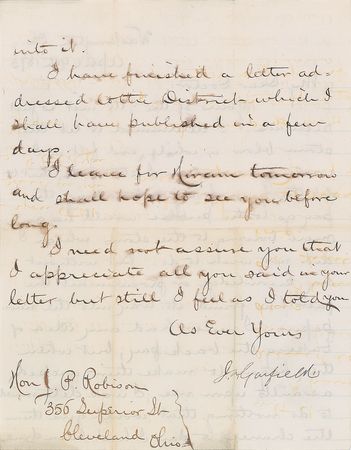 into it.
I have finished a letter ad-
dressed to the District which I
shall have published in a few
days.
I leave for Hiram tomorrow
and shall hope to see you before
long.
I need not assure you that
I appreciate all you said in your
letter but still I feel as I told you
As Ever Yours
J A Garfield
Hon J. P. Robison
350 Superior St
Cleveland Ohio